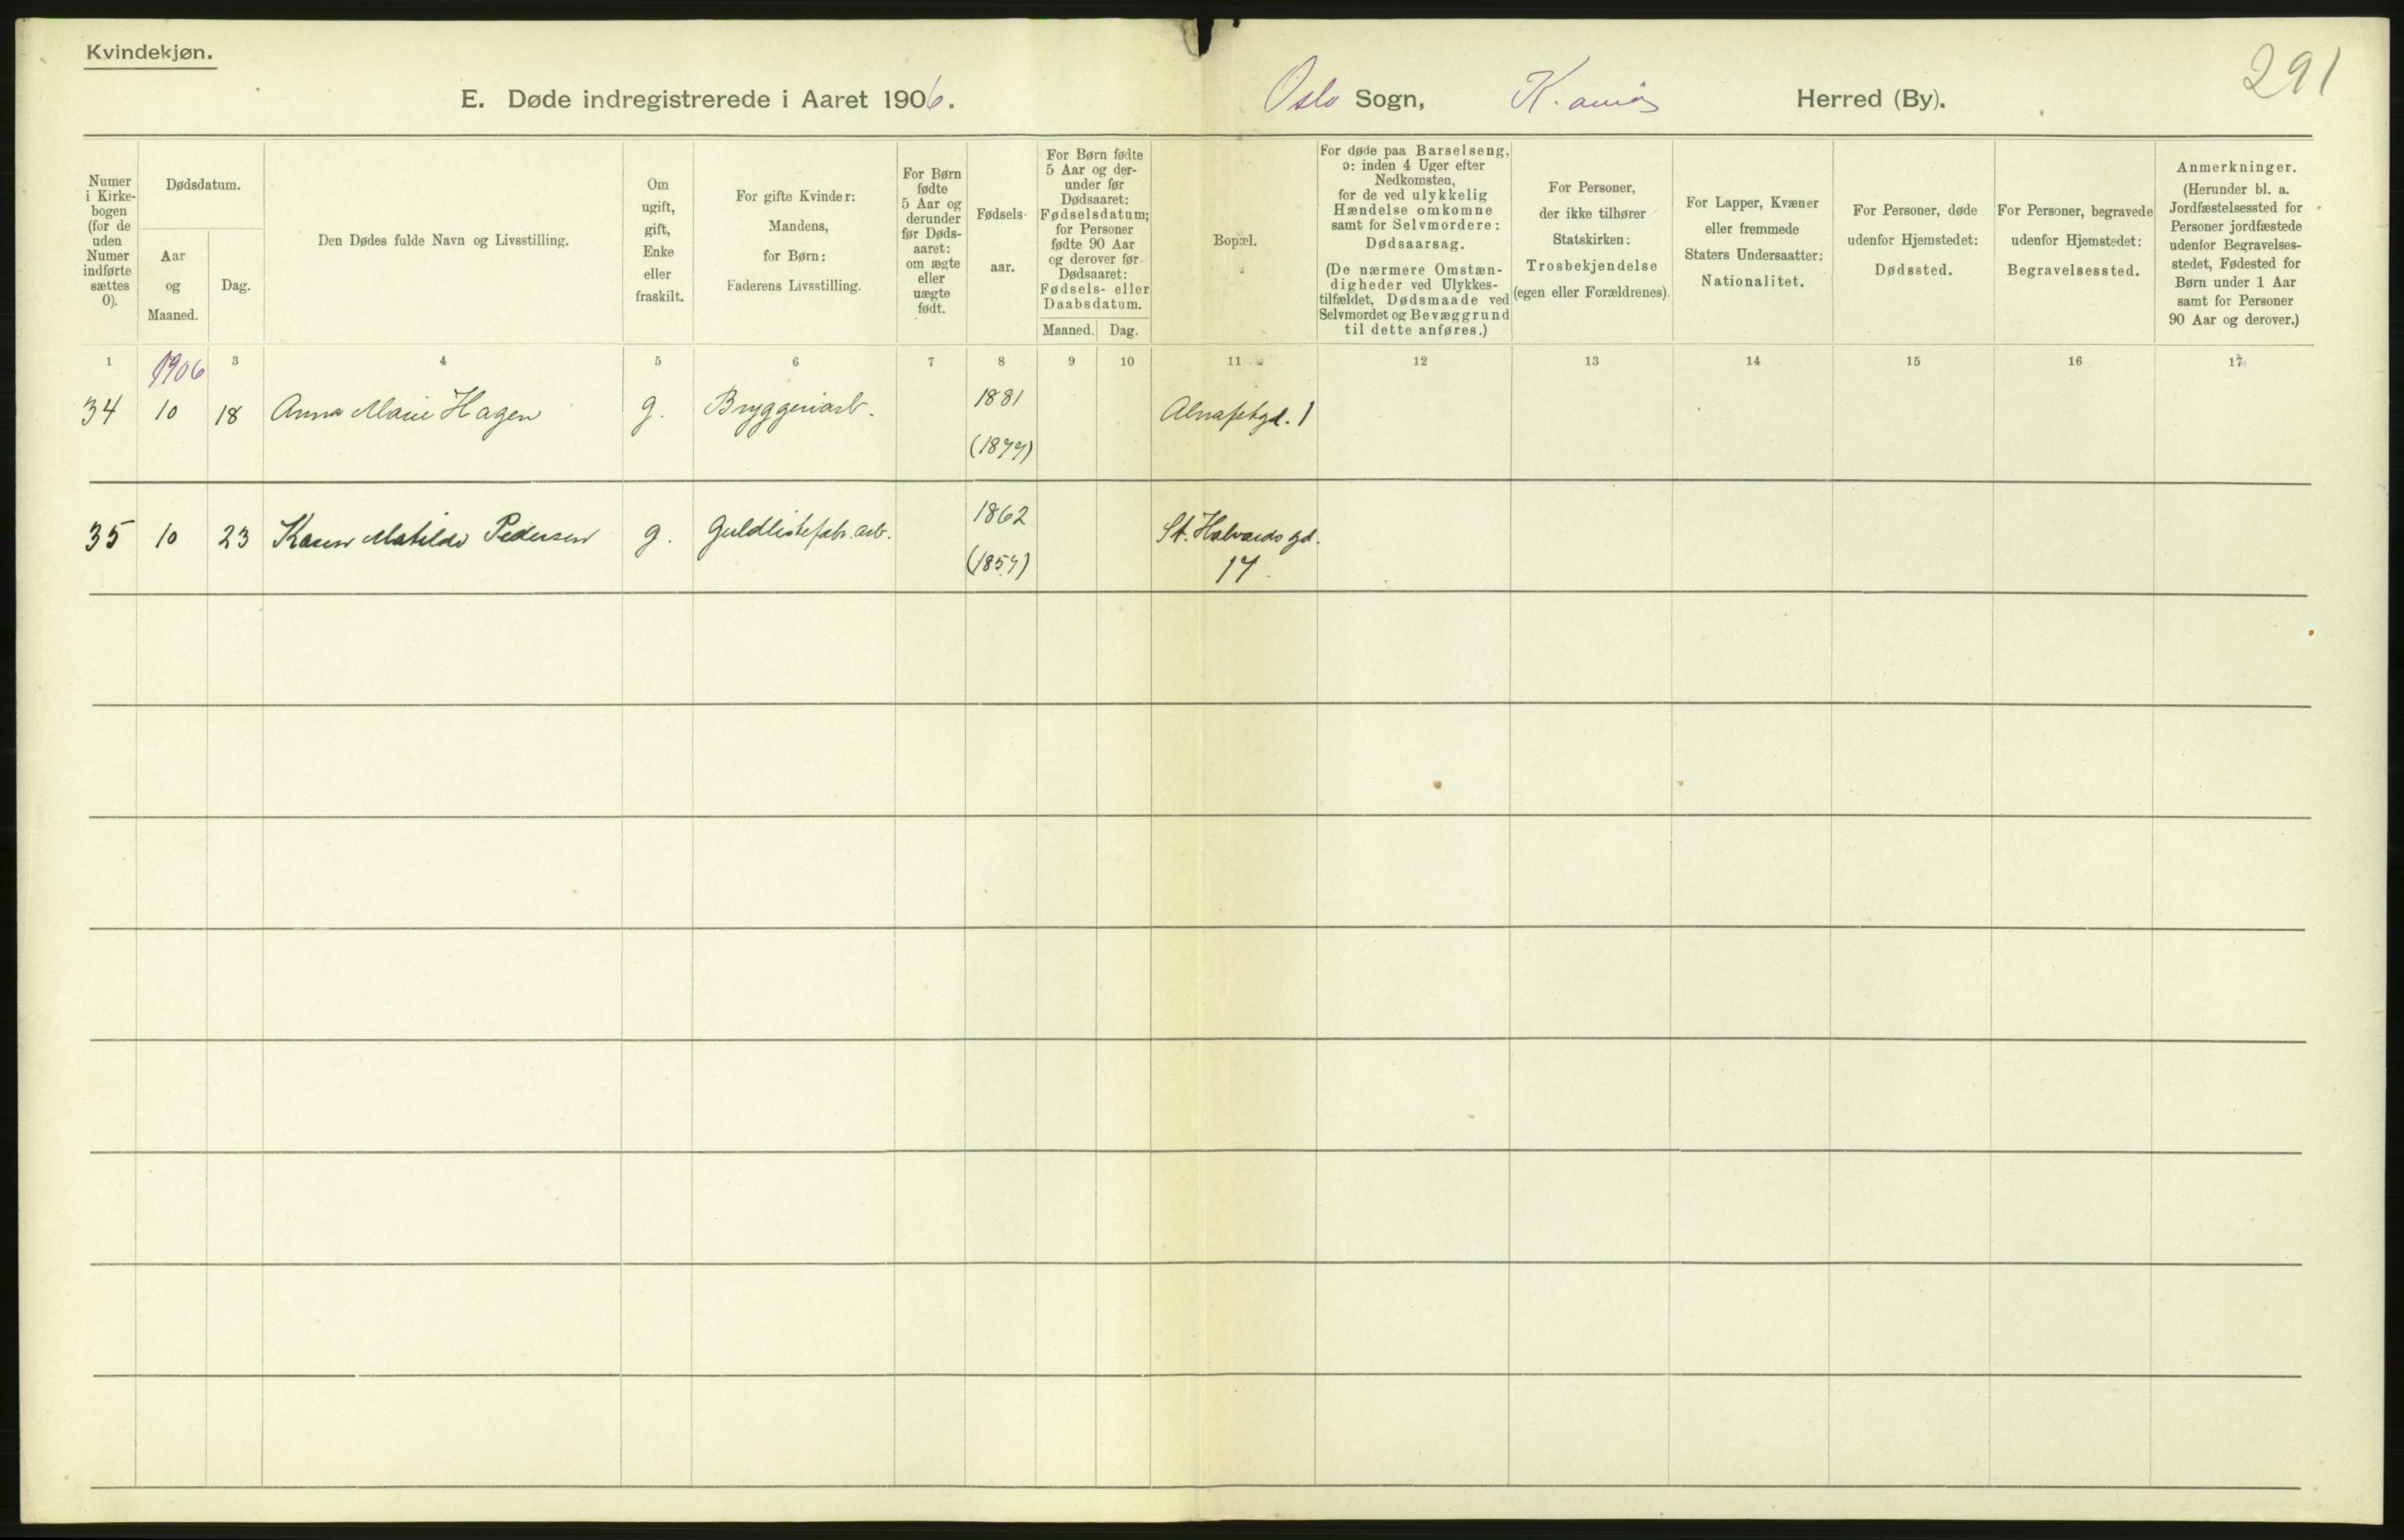 Kvindekjøn.
291
E. Døde indregistrerede i Aaret 1906. Oslo Sogn, K.ania Herred (By).
Numer i Kirke-bogen (for de uden Numer indførte sættes 0).
Dødsdatum.
Aar og Maaned.
Dag.
Den Dødes fulde Navn og Livsstilling.
Om ugift, gift, Enke eller fraskilt.
For gifte Kvinder: Mandens, for Børn: Faderens Livsstilling.
For Børn fødte 5 Aar og derunder før Døds-aaret: om ægte eller uægte født.
Fødsels-aar.
For Børn fødte 5 Aar og der-under før Dødsaaret: Fødselsdatum; for Personer fødte 90 Aar og derover før Dødsaaret: Fødsels- eller Daabsdatum.
Maaned. Dag.
Bopæl.
For døde paa Barselseng, ɔ: inden 4 Uger efter Nedkomsten, for de ved ulykkelig Hændelse omkomne samt for Selvmordere: Dødsaarsag.
(De nærmere Omstæn-digheder ved Ulykkes-tilfældet, Dødsmaade ved Selvmordet og Bevæggrund til dette anføres.)
For Personer, der ikke tilhører Statskirken: Trosbekjendelse (egen eller Forældrenes).
For Lapper, Kvæner eller fremmede Staters Undersaatter: Nationalitet.
For Personer, døde udenfor Hjemstedet: Dødssted.
For Personer, begravede udenfor Hjemstedet: Begravelsessted.
Anmerkninger.
(Herunder bl. a. Jordfæstelsessted for Personer jordfæstede udenfor Begravelses-stedet, Fødested for Børn under 1 Aar samt for Personer 90 Aar og derover.)
1 3 4 5 6 7 8 9 10 11 12 13 14 15 16 17
1906
34 10 18 Anna Marie Hagen g. Bryggeriarb. 1881 Alnafetgd. 1
(1877)
35 10 23 Karen Matilde Pedersen g. Guldlistefabr.arb. 1862 St. Halvards gd.
(1857) 17